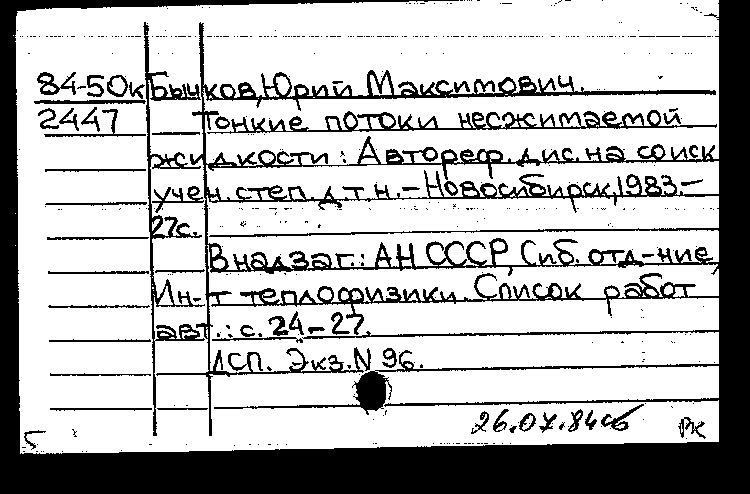 84-5ок Бычков, Юрий Максимович.
2447 Тонкие потоки несжимаемой
жидкости : Автореф. дис. на соиск
учен. степ. д т. н. – Новосибирск, 1983. –
27с.
В надзаг.: АН СССР, Сиб. отд-ние,
Ин-т теплофизики. Список работ
авт.: с. 24–27.
ДСП. Экз. N 96.
26.07.84
РК